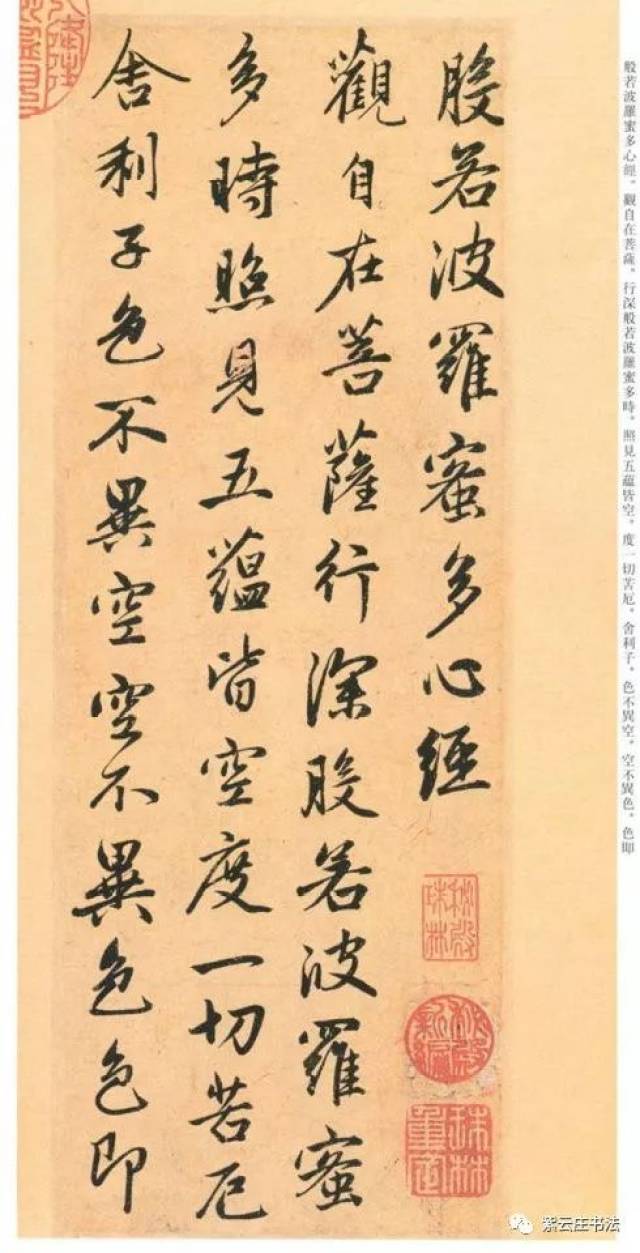 般若波羅蜜多心經。觀自在菩薩。行深般若波羅蜜多時。照見五蘊皆空。度一切苦厄。舍利子。色不異空。空不異色。色即
般若波羅蜜多心經
觀自在菩薩行深般若波羅蜜
多時照見五蘊皆空度一切苦厄
舍利子色不異空空不異色色即
秘殿珠林
秘殿新編
珠林重定
絮云庄书法